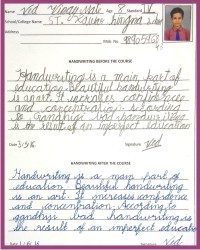 Name Ved Age 8 Standard IV
School/College St. Xavier
Address
Mob. No.
HANDWRITING BEFORE THE COURSE
Handwriting is a main part of
education beautiful handwriting
is an art. It increases confidences
and concentration
bad handwriting
is the result of an imperfect education
Signature Ved
HANDWRITING AFTER THE COURSE
Handwriting is a main part of
education. Beautiful handwriting
is an art. It increases confidence
and concentration. According to
gandhiji bad handwriting is
the result of an imperfect education
Signature Ved